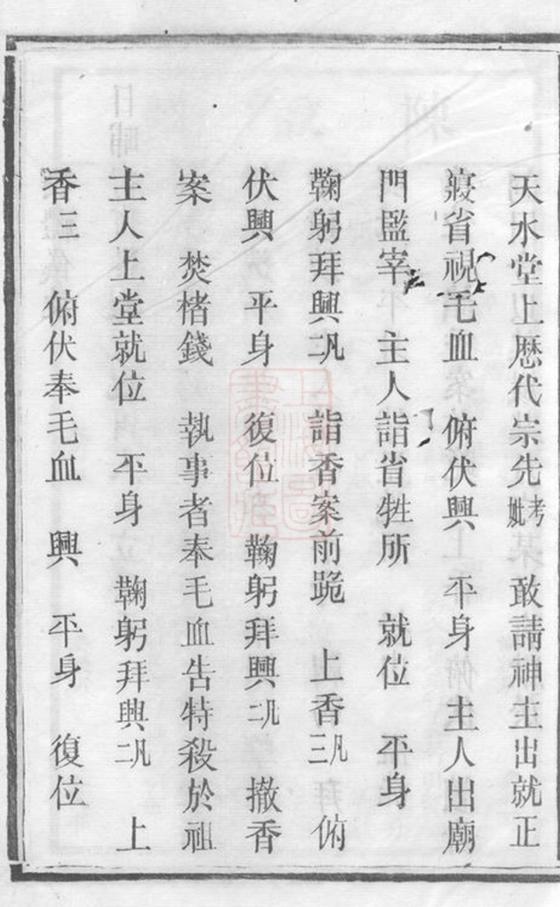 天水堂上歷代宗先考妣敢請神主出就正
寢省視毛血 俯伏興 平身 主人出廟
門監宰 主人詣省牲所 就位 平身
鞠躬拜興凡二 詣香案前跪 上香凡三 俯
伏興 平身 復位 鞠躬拜興凡二 撤香
案 焚楮錢 執事者奉毛血告特殺於祖
主人上堂就位 平身 鞠躬拜興凡二 上
香三 俯伏奉毛血 興 平身 復位